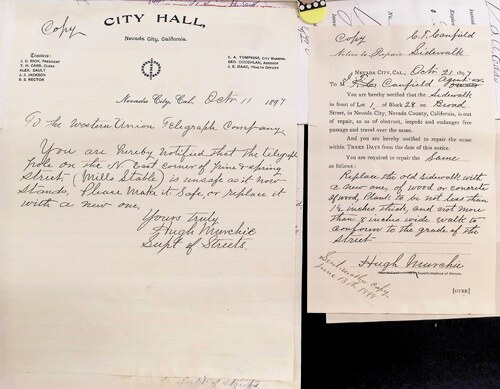 Copy
CITY HALL,
Nevada City, California.
Trustees:
J. C. RICH, PRESIDENT
T. H. CARR, CLERK
ALEX. GAULT
J. J. JACKSON
S. S. RECTOR
E. A. TOMPKINS, CITY MARSHAL
GEO. COUGHLAN, ASSESSOR
Nevada City, Cal. Oct 11 1897
To the Western Union Telegraph Company,
You are hereby notified that the telegraph
pole on the N East corner of & Spring
Street (Mills Stable) is unsafe as it now
stands. Please Make it Safe, or replace it
with a new one.
Yours truly
Hugh Murchie
Supt of Streets.
Copy C. F. Canfield
Notice to Repair Sidewalk
NEVADA CITY, CAL., Oct 21 1897
To M Canfield Agent or
You are hereby notified that the Sidewalk
in front of Lot 1 of Block 28 on Broad
Street, in Nevada City, Nevada County, California, is out
of repair, so as to obstruct, impede and endanger free
passage and travel over the same.
And you are hereby notified to repair the same
within THREE DAYS from the date of this notice.
You are required to repair the Same
as follows:
Replace the old Sidewalk with
a new one, of wood or concrete
if wood, Plank to be not less than
1½ inches thick, and not more
than 8 inches wide walk to
conform to the grade of the
Street
Hugh Murchie
Superintendent of Streets.
Sent another copy
June 13th 1898
[OVER]